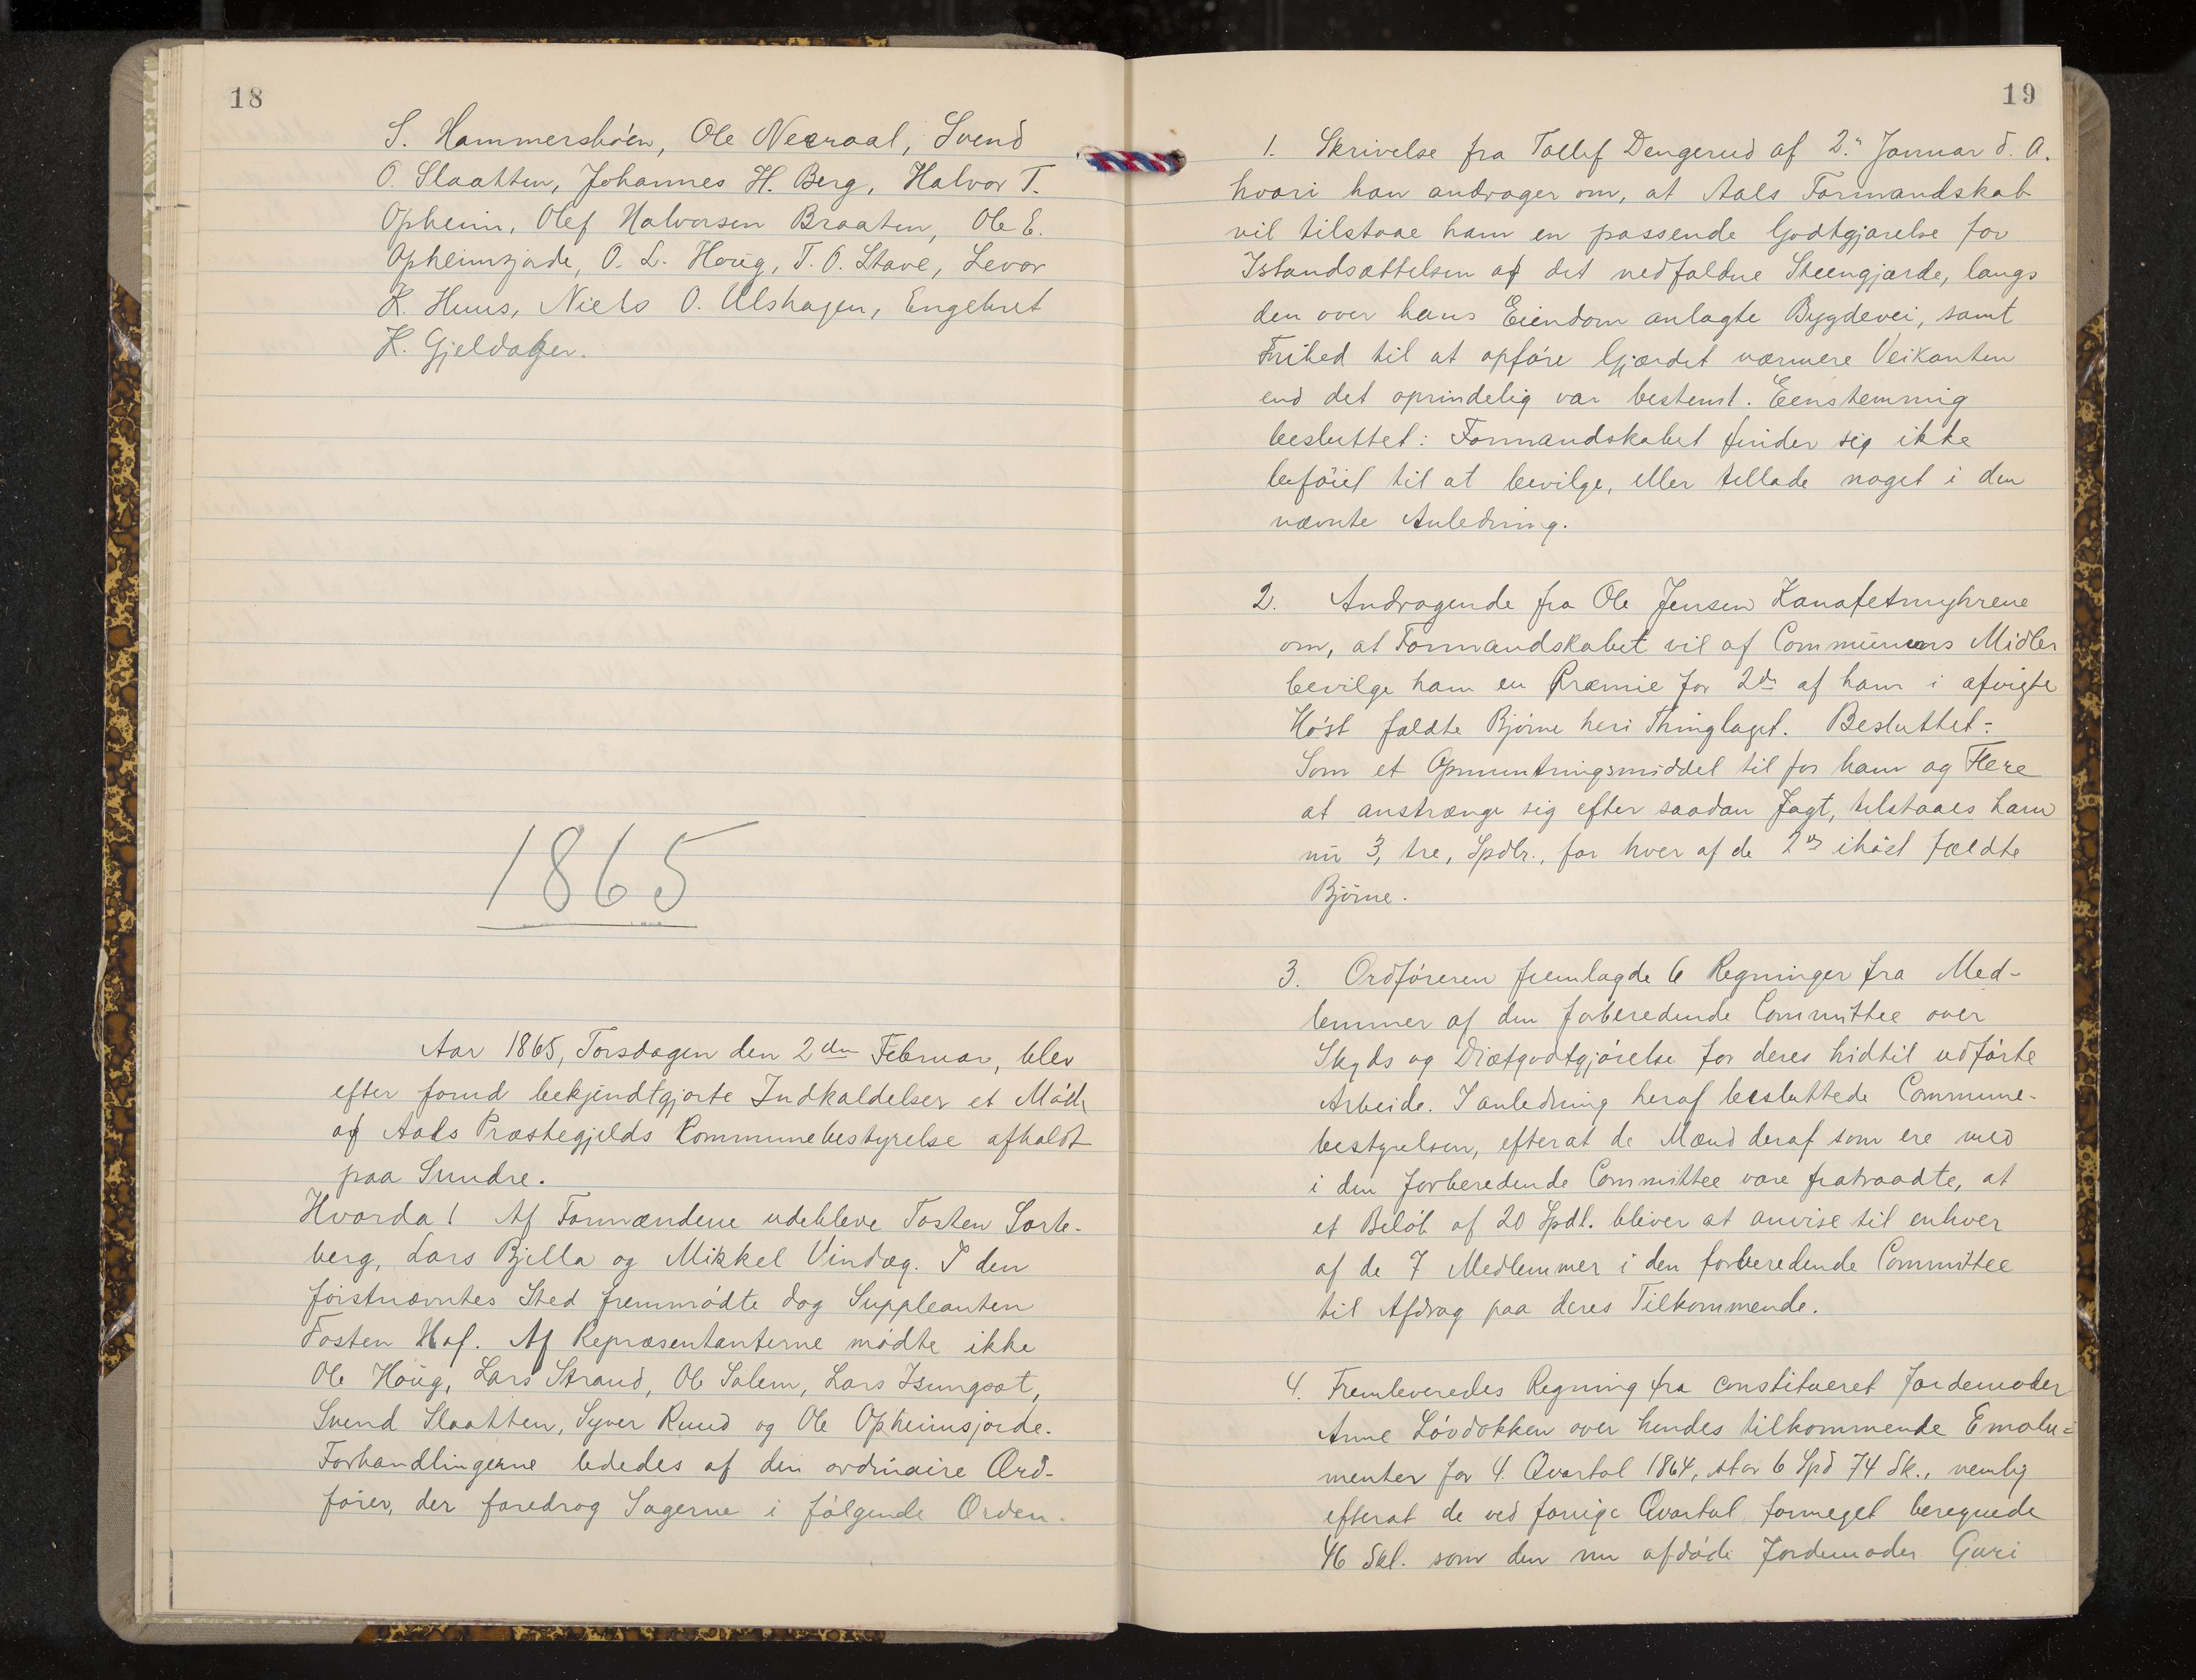 18
S. Hammersbøen, Ole Nerraal, Svend
O. Slaatten, Johannes H. Berg, Halvor T.
Opheim, Olef Halvorsen Braaten, Ole E.
Opheimsjorde, O. L. Houg, T. O. Stave, Levor
K. Huus, Niels O. Ulshagen, Engebret
K. Gjeldager.
1865
Aar 1865, Torsdagen den 2den Februar, blev
efter forud bekjendtgjorte Indkaldelser et Møde
af Aals Præstegjelds Kommunebestyrelse afholdt
paa Sundre.
Hvorda! Af Formændene udebleve Tosten Sorte-
berg, Lars Bjella og Mikkel Vindeg. I den
førstnævntes Sted fremmødte dog Suppleanten
Tosten Hof. Af Repræsentanterne mødte ikke
Ole Houg, Lars Strand, Ole Solem, Lars
Svend Slaatten, Syver Ruud og Ole Opheimsjorde.
Forhandlingerne lededes af den ordinaire Ord-
fører, der foredrog Sagerne i følgende Orden.
19
1. Skrivelse fra Tollef Dengerud af 2." Januar d. A.
hvori han andrager om, at Aals Formandskab
vil tilstaae ham en passende Godtgjørelse for
Istandsættelsen af det nedfaldne Steengjærde, langs
den over hans Eiendom anlagte Bygdevei, samt
Frihed til at opføre Gjærdet nærmere Veikanten
end det oprindelig var bestemt. Eenstemmig
besluttet: Formandskabet finder sig ikke
beføiet til at bevilge, eller tillade noget i den
nævnte Anledning.
2. Andragende fra Ole Jensen Kanafetmyhrene
om, at Formandskabet vil af Communens Midler
bevilge ham en Præmie for 2de af ham i afvigte
Høst fældte Bjørne heri Thinglaget. Besluttet:
Som et Opmuntringsmiddel til for ham og Flere
at anstrænge sig efter saadan Jagt, tilstaaes ham
nu 3, tre, Spdlr., for hver af de 2de ihøst fældte
Bjørne.
3. Ordføreren fremlagde 6 Regninger fra Med-
lemmer af den forberedende Committee over
Skyds og Diætgodtgjørelse for deres hidtil udførte
Arbeide. I anledning heraf besluttede Commune-
bestyrelsen, efterat de Mænd deraf som ere med
i den forberedende Committee vare fratraadte, at
et Beløb af 20 Spdl. bliver at anvise til enhver
af de 7 Medlemmer i den forberedende Committee
til Afdrag paa deres Tilkommende.
4. Fremleveredes Regning fra constitueret Jordemoder
Anne Løvdokken over hendes tilkommende Emolu=
menter for 4. Qvartal 1864, stor 6 Spd 74 Sk., nemlig
efterat de ved forrige Qvartal formeget beregnede
46 Skl. som den nu afdøde Jordemoder Guri